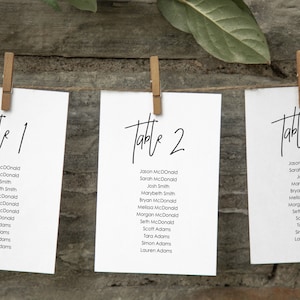 le 1
McDonald
McDonald
Smith
Smith
McDonald
McDonald
McDonald
McDonald
Adams
Adams
Adams
Adams
Table 2
Jason McDonald
Sarah McDonald
Josh Smith
Marybeth Smith
Bryan McDonald
Melissa McDonald
Morgan McDonald
Seth McDonald
Scott Adams
Tara Adams
Simon Adams
Lauren Adams
Tab
Jason
Sarah
Jos
Mary
Bryan
Meliss
Morga
Seth
Sco
Tar
Simo
Laure